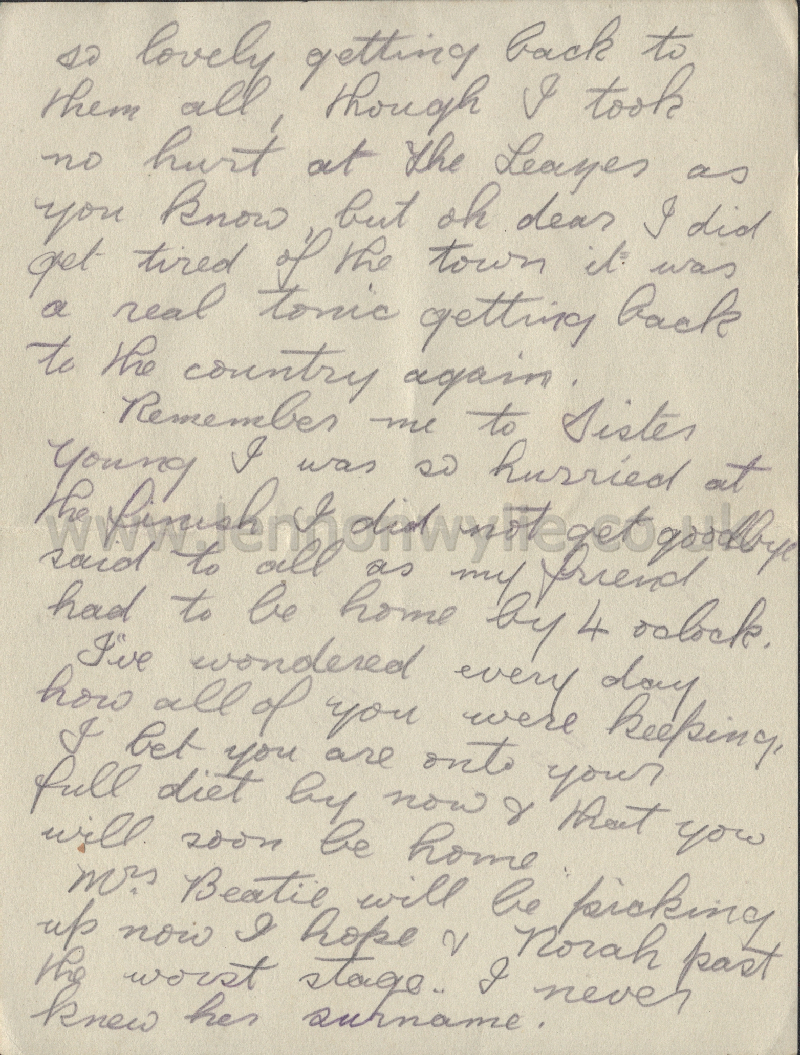 so lovely getting back to
them all, though I took
no hurt at The Leayes as
you know, but oh dear I did
get tired of the town it was
a real tonic getting back
to the country again.
Remember me to Sister
Young I was so hurried at
the finish I did not get goodbye
www.lennonwylie.co.uk
said to all as my friend
had to be home by 4 oclock.
I've wondered every day
how all of you were keeping,
I bet you are onto your
full diet by now & that you
will soon be home.
Mrs Beatie will be picking
up now I hope & Norah past
the worst stage.. I never
knew her surname.